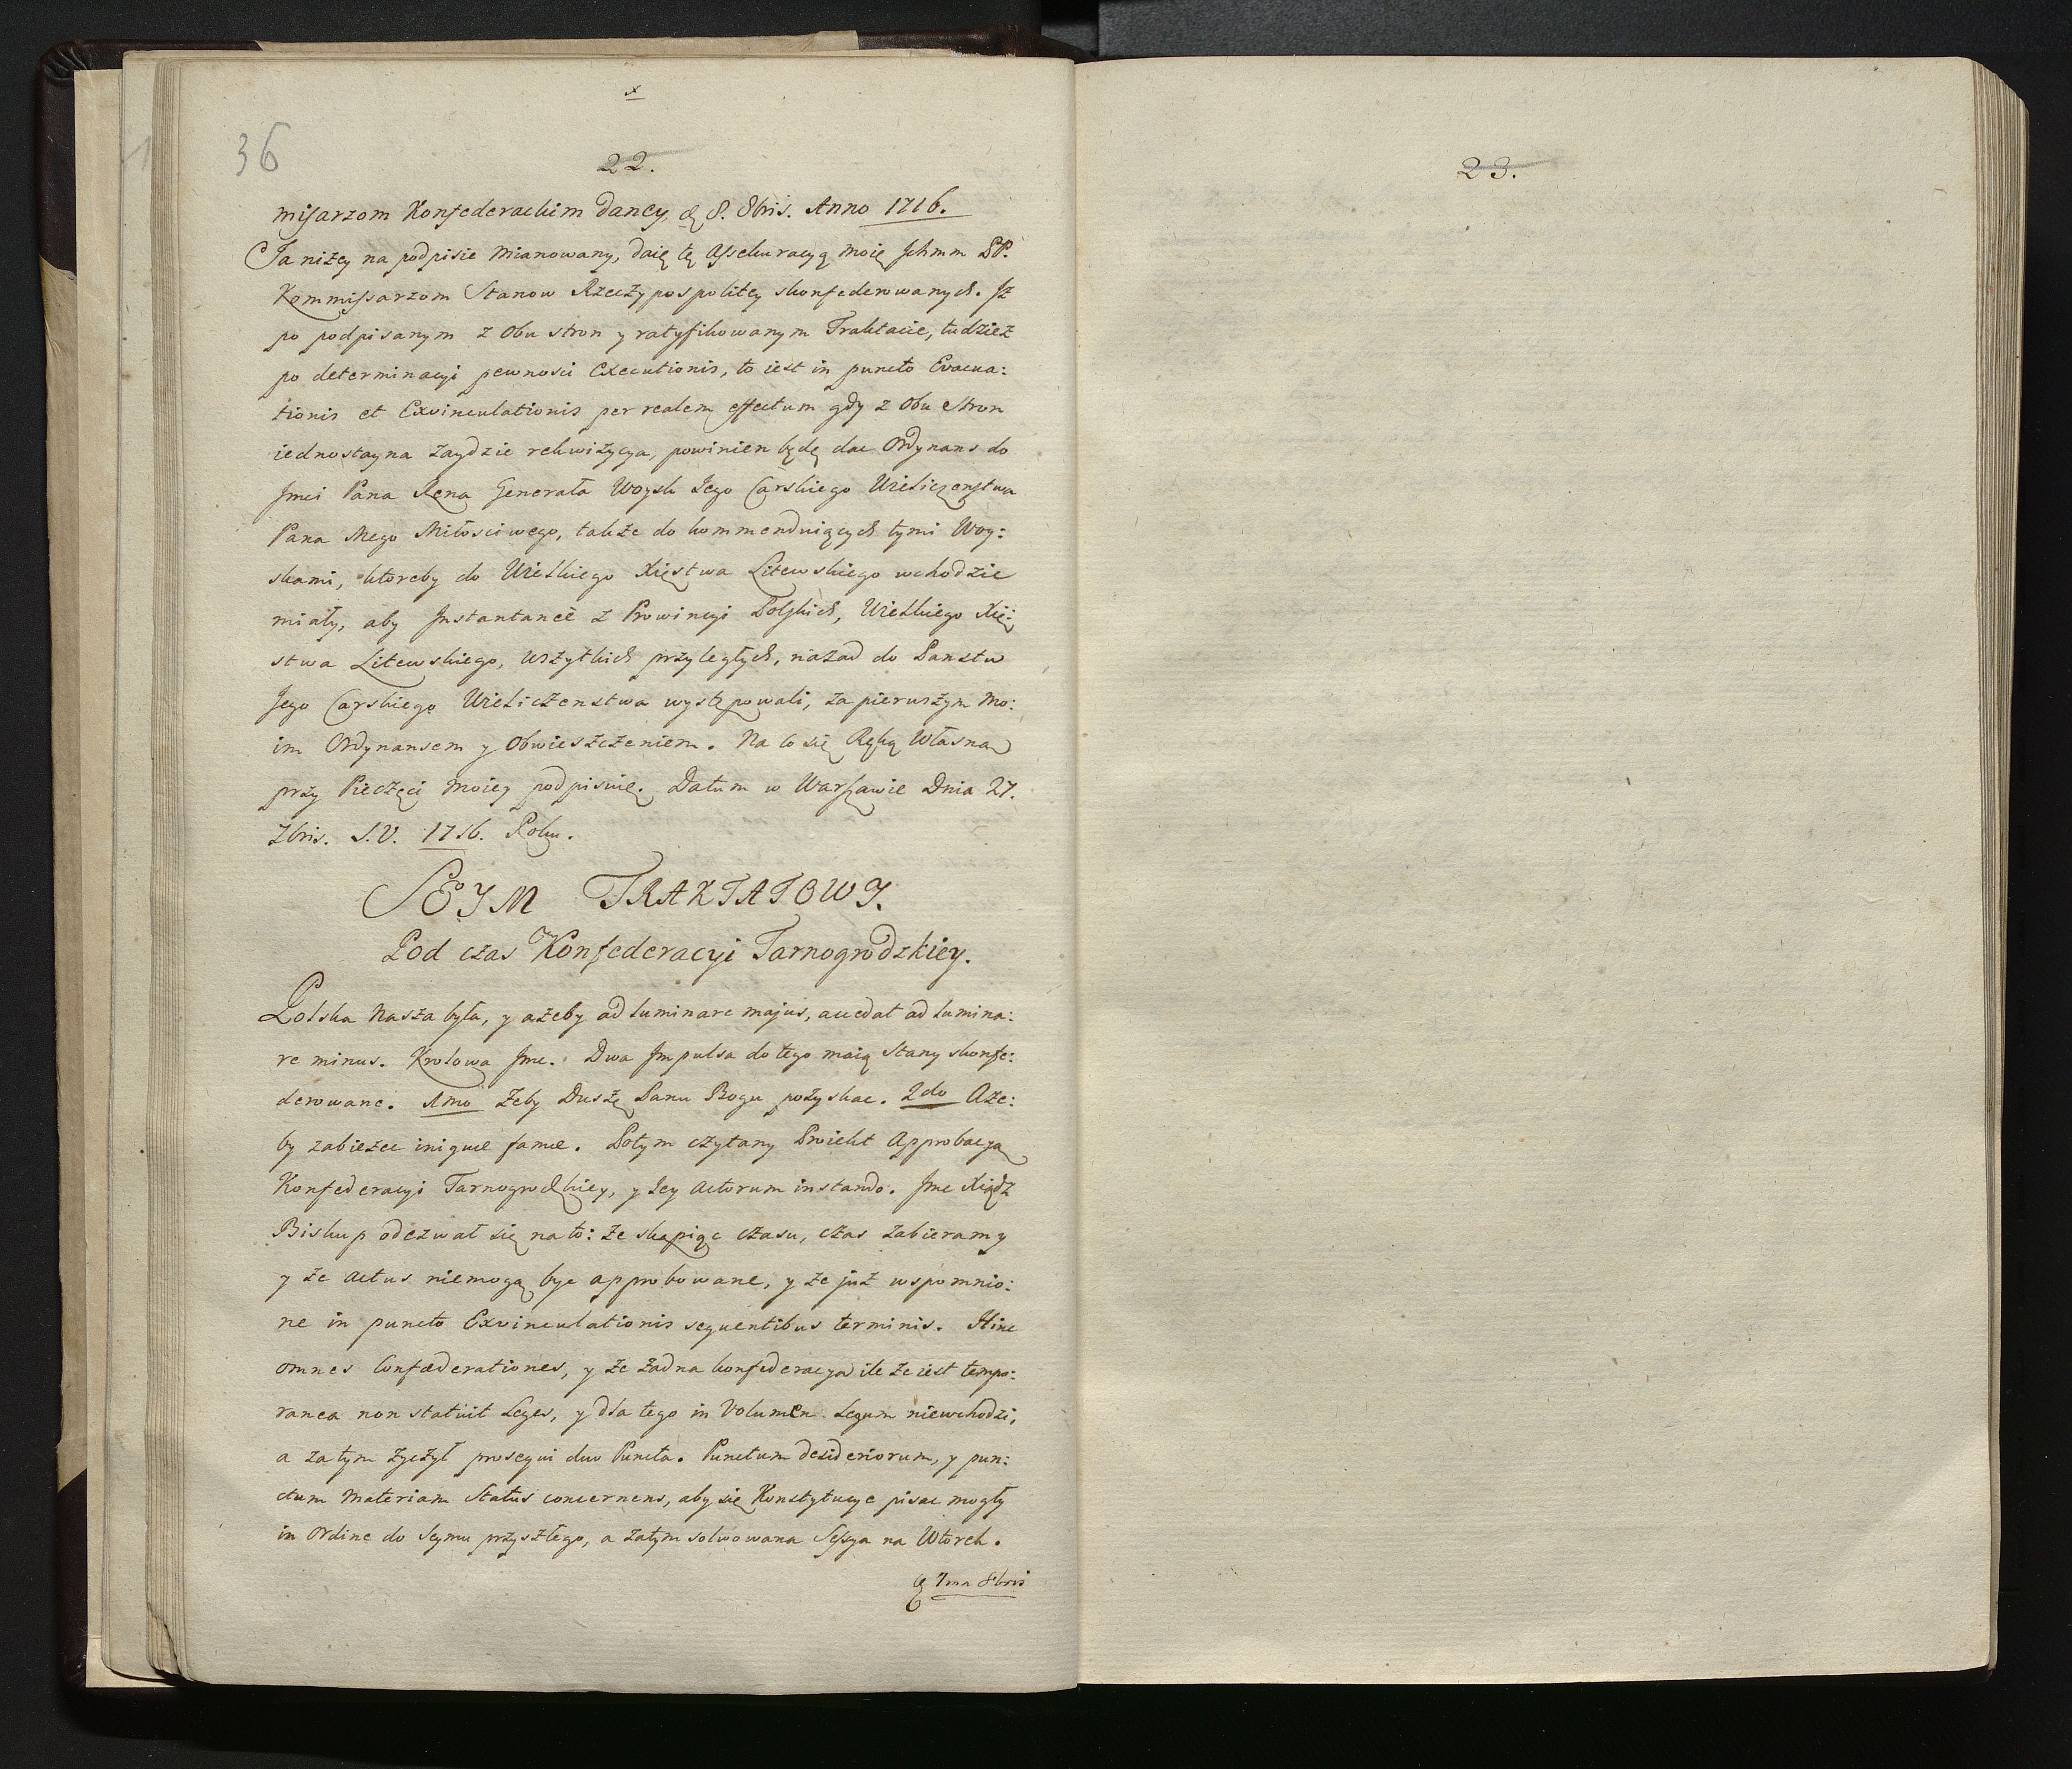 x
36
22.
misarzom Konfederackim Dancy, d. 8. 8bris. Anno 1716.
Ja niżey na podpisie mianowany, daię tę Assekuracyą moię Jchmm PP.
Kommissarzom Stanow Rzeczypospolitey skonfederowanych. Jż
po podpisanym z obu stron y ratyfikowanym Traktacie, tudziez
po determinacyi pewnosci Executionis, to iest in puncto Evacua:
tionis et Exvinculationis per realem effectum gdy z obu stron
iednostayna zaydzie rekwizycya, powinien będę dac Ordynans do
Jmci Pana Rena Generała Woysk Jego Carskiego Wieliczenstwa
Pana Mego Miłosciwego, także do kommenduiących tymi Woy:
skami, ktoreby do Wielkiego Xięstwa Litewskiego wchodzic
miały, aby Instantanee z Prowincyi Polskich, Wielkiego Xię:
stwa Litewskiego, wszytkich przyległych, nazad do Panstw
Jego Carskiego Wieliczenstwa występowali, za pierwszym mo:
im Ordynansem y Obwieszczeniem. Na co się Ręką Własną
przy Pieczęci moiey podpisuię. Datum w Warszawie Dnia 27.
7bris. S.V. 1716. Roku.
SEYM TRAKTATOWY.
Pod czas Konfederacyi Tarnogrodzkiey.
Polska nasza była, y ażeby ad luminare majus, accedat ad lumina:
re minus. Krolowa Jmc. Dwa Impulsa do tego maią Stany skonfe:
derowane. 1mo Żeby Duszę Panu Bogu pozyskac. 2do Aże:
by zabieżec iniquae famae. Potym czytany Proiekt Approbacyą
Konfederacyi Tarnogrodzkiey, y Jey actorum instando. Jmc Xiądz
Biskup odezwał się na to: że skąpiąc czasu, czas zabieramy
y że actus niemogą byc approbowane, y że już wspomnio:
ne in puncto Exvinculationis sequentibus terminis. Hinc
omnes Confaederationes, y że żadna konfederacya ile że iest tempo:
ranea non statuit Leges, y dla tego in Volumen Legum niewchodzi,
a zatym życzył prosequi duo Puncta. Punctum desideriorum, y pun:
ctum materiam Status concernens, aby się Konstytucye pisac mogły
in ordine do Seymu przyszłego, a zatym solwowana Sessya na Wtorek.
d. 7ma 8bris
23.